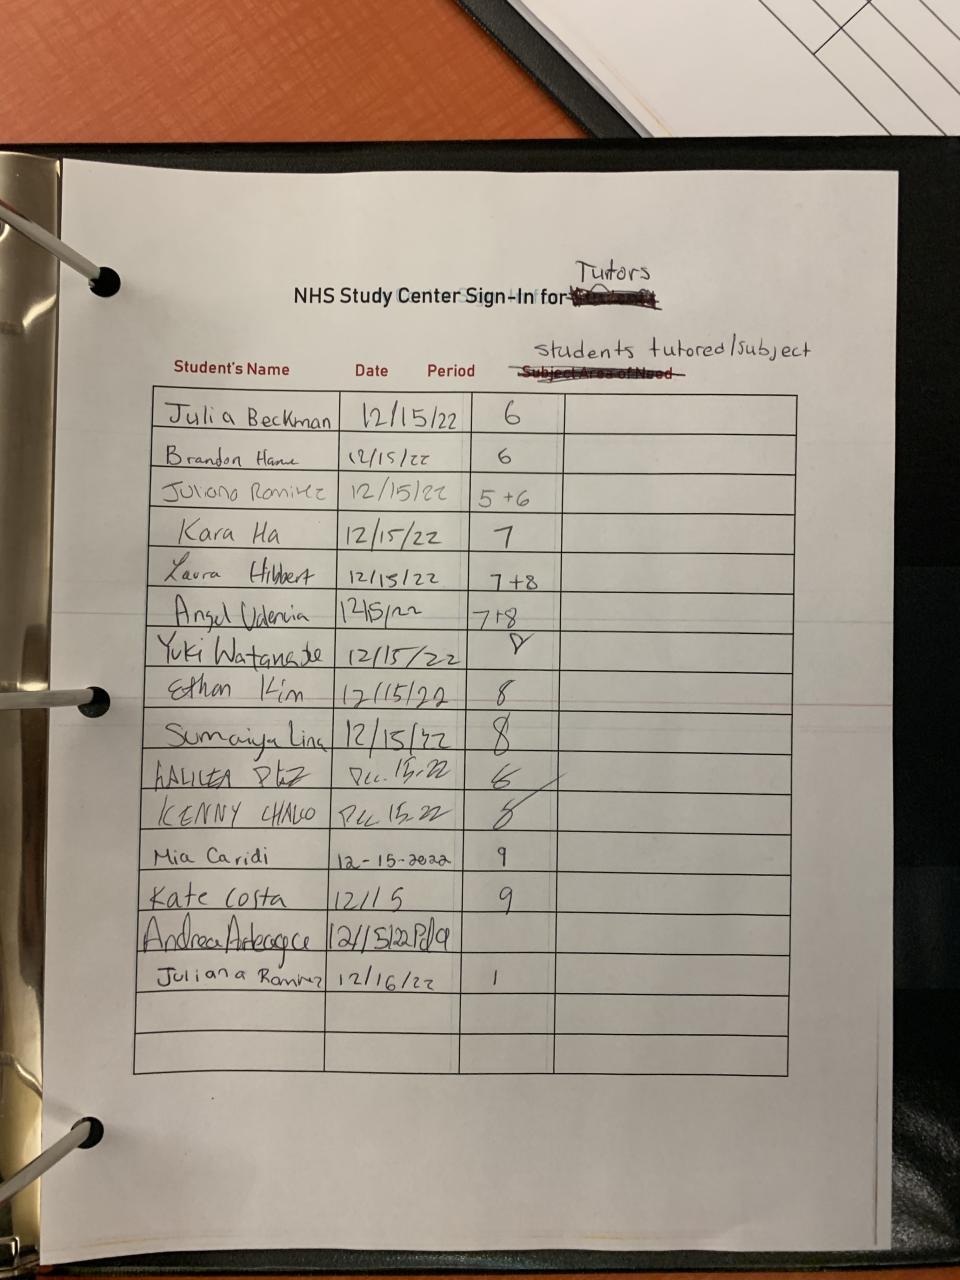 Tutors
NHS Study Center Sign-In for
students tutored/subject
Student's Name Date Period Subject Area of Need
Julia Beckman 12/15/22 6
Brandon 12/15/22 6
Juliana Ramirez 12/15/22 5+6
Kara Ha 12/15/22 7
Laura Hibbert 12/15/22 7+8
Angel 12/15/22 7+8
Yuki Watanabe 12/15/22 8
Ethan Kim 12/15/22 8
Sumaiya 12/15/22 8
Dec. 15. 22
KENNY Dec. 15. 22
Mia Caridi 12-15-2022 9
Kate Costa 12/15 9
Andrea 12/15/22 Pd9
Juliana Ramirez 12/16/22 1